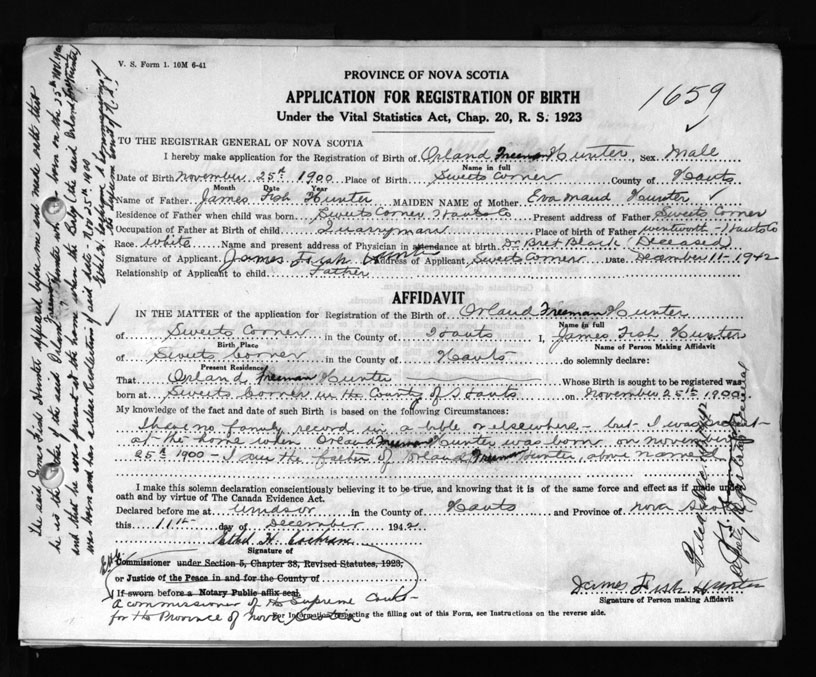 V. S. Form 1. 10M 6-41
PROVINCE OF NOVA SCOTIA
APPLICATION FOR REGISTRATION OF BIRTH
Under the Vital Statistics Act, Chap. 20, R. S. 1923
1659
TO THE REGISTRAR GENERAL OF NOVA SCOTIA
I hereby make application for the Registration of Birth of Orland Freeman Hunter, Sex Male
Name in full
Date of Birth November 25th 1900 Place of Birth Sweets Corner County of Hants
Month Date Year
Name of Father James Fish Hunter MAIDEN NAME of Mother Eva Maud Hunter
Residence of Father when child was born Sweets Corner Hants Co Present address of Father Sweets Corner
Occupation of Father at Birth of child Quarryman Place of birth of Father Wentworth - Hants Co
Race White Name and present address of Physician in attendance at birth Dr Bret Black (Deceased)
Signature of Applicant James Fish Hunter Address of Applicant Sweets Corner Date December 11 - 1942
Relationship of Applicant to child Father
AFFIDAVIT
IN THE MATTER of the application for Registration of the Birth of Orland Freeman Hunter
Name in full
of Sweets Corner in the County of Hants I, James Fish Hunter
Birth Place Name of Person Making Affidavit
of Sweets Corner in the County of Hants do solemnly declare:
Present Residence
That Orland Freeman Hunter Whose Birth is sought to be registered was
born at Sweets Corner in the County of Hants on November 25th 1900
My knowledge of the fact and date of such Birth is based on the following Circumstances:
There no family record in a bible or elsewhere - but I was present
at the home when Orland Freeman Hunter was born on November
25th 1900 - I am the father of Orland Freeman Hunter, above named
I make this solemn declaration conscientiously believing it to be true, and knowing that it is of the same force and effect as if made under
oath and by virtue of The Canada Evidence Act.
Declared before me at Windsor in the County of Hants and Province of Nova Scotia
this 11th day of December 1942
Ethel H. Cochran
Signature of
Commissioner under Section 5, Chapter 38, Revised Statutes, 1923;
or Justice of the Peace in and for the County of
If sworn before a Notary Public affix seal.
A commissioner of the Supreme Court
for the Province of Nova Scotia
James Fish Hunter
Signature of Person making Affidavit
For Information respecting the filling out of this Form, see Instructions on the reverse side.
The said James Fish Hunter appeared before me and made oath that
he is the father of the said Orland Freeman Hunter who was born on the 25th Nov. 1900
and that he was present at the home when the Baby (the said Orland Hunter)
was born and has a clear recollection of said date - Nov 25th 1900